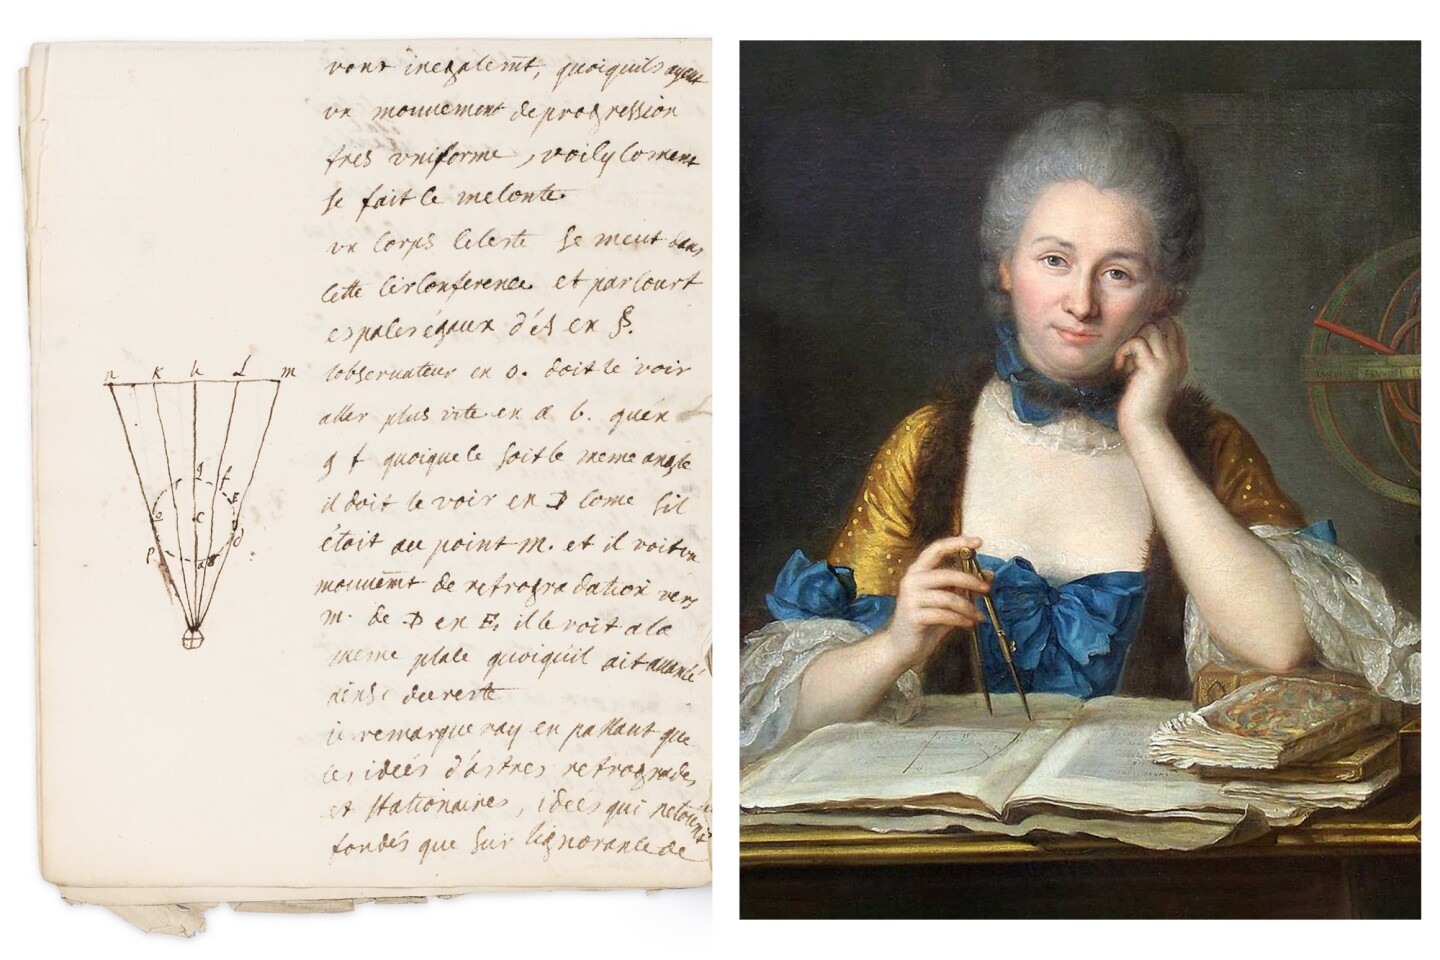 vont inegalemt, quoiquils ayent
un mouuement de progression
tres vniforme, voicy coment
se fait le meconte
un corps celeste se meut dans
cette circonference et parcourt
espaces égaux
n k h L m
lobseruateur en o. doit le voir
aller plus vite en a b. quen
g f quoique ce soit le meme angle
il doit le voir en D come sil
étoit au point m. et il voit un
mouuemt de retrogradation vers
m. de D en E, il le voit a la
meme place quoiquil ait auancé
ainsi du reste
ie remarqueray en passant que
les idees d'astres retrogrades
et stationaires, idees qui
fondés que sur lignorance de